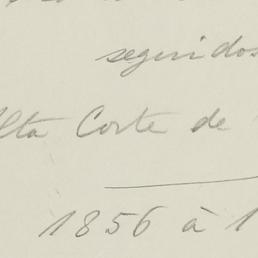 seguidos
Alta Corte de
1856 à 1